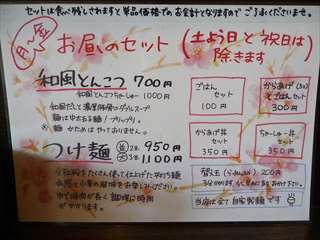 セットは食べ残しされますと単品価格でのお会計となりますのでご了承くださいませ。
月〜金
お昼のセット(土よう日と祝日は
除きます)
和風とんこつ 700円
和風とんこつちゃーしゅー 1000円
和風だしと濃厚豚骨のダブルスープ
麺は中太ちぢれ麺!プリップリ。
麺かためはやっておりません。
つけ麺
並 2玉 950円
大 3玉 1100円
ごはん
セット
100円
からあげ(3コ)
とごはんセット
300円
からあげ丼
セット
350円
ちゃーしゅー丼
セット
350円
替え玉
200円
当店は全て自家製麺です